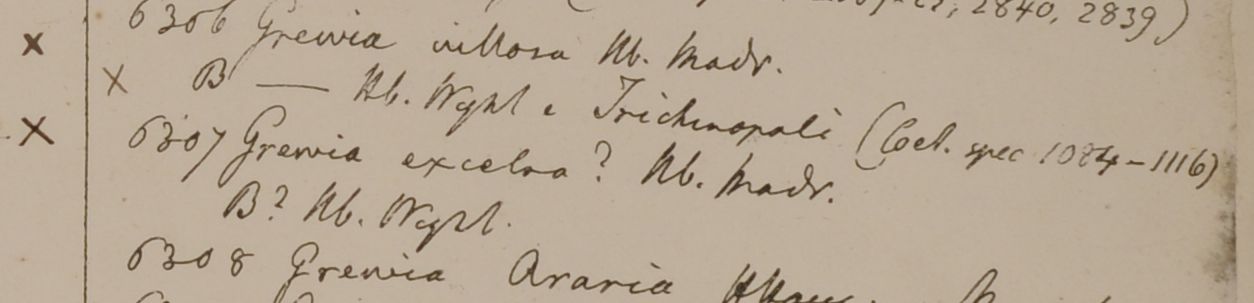 2840, 2839)
6306 Grewia villosa Hb. Madr.
B — Hb. Wight e Trichinopoli (Cel. spec 1084-1116)
6307 Grewia excelsa? Hb. Madr.
B? Hb. Wight.
6308 Grewia